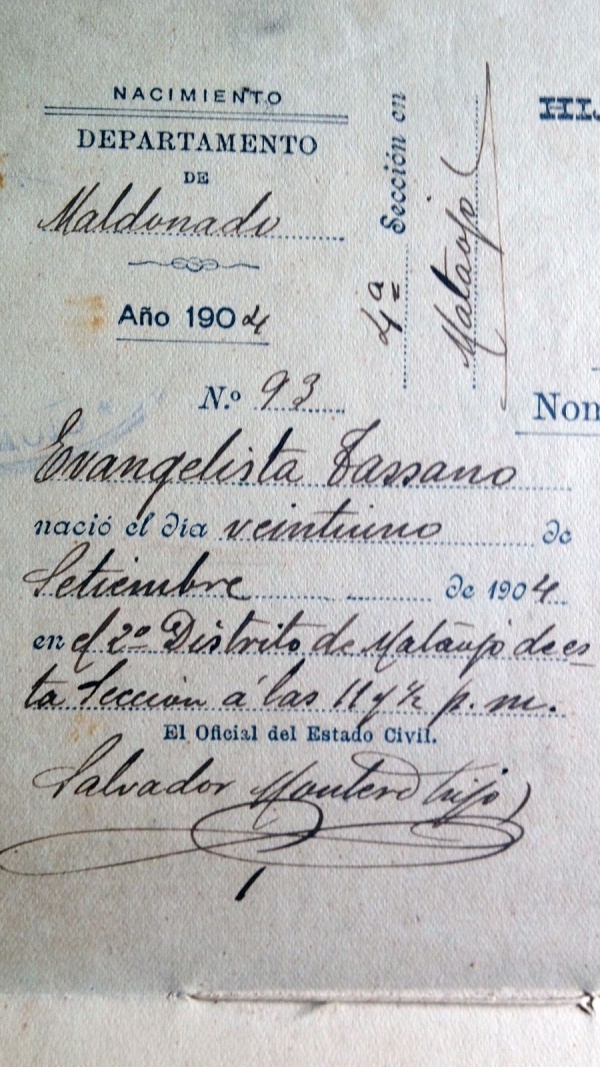 NACIMIENTO
DEPARTAMENTO
DE
Maldonado
Año 1904
N.º 93
4ª Sección en
Mataojo
HIJ
Nom
Evangelista Tassano
nació el día veintiuno de
Setiembre de 1904
en el 2º Distrito de Mataojo de es
ta Sección á las 11 y ½ p. m.
El Oficial del Estado Civil.
Salvador Montero (hijo)